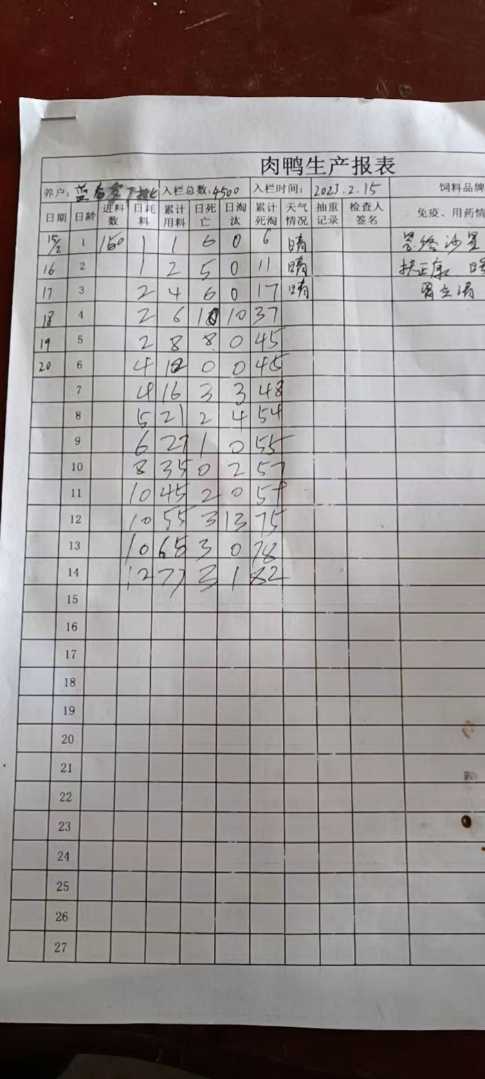 肉鸭生产报表
养户: 蓝 入栏总数: 4500 入栏时间: 2023.2.15 饲料品牌
日期 日龄 进料数 日耗料 累计用料 日死亡 日淘汰 累计死淘 天气情况 抽重记录 检查人签名 免疫、用药情
15/2 1 150 1 1 6 0 6 晴
16 2 1 2 5 0 11 晴 扶正康
17 3 2 4 6 0 17 晴
18 4 2 6 10 10 37
19 5 2 8 8 0 45
20 6 4 12 0 0 45
7 4 16 3 3 48
8 5 21 2 4 54
9 6 27 1 0 55
10 8 35 0 2 57
11 10 45 2 0 59
12 10 55 3 13 75
13 10 65 3 0 78
14 12 77 3 1 82
15
16
17
18
19
20
21
22
23
24
25
26
27